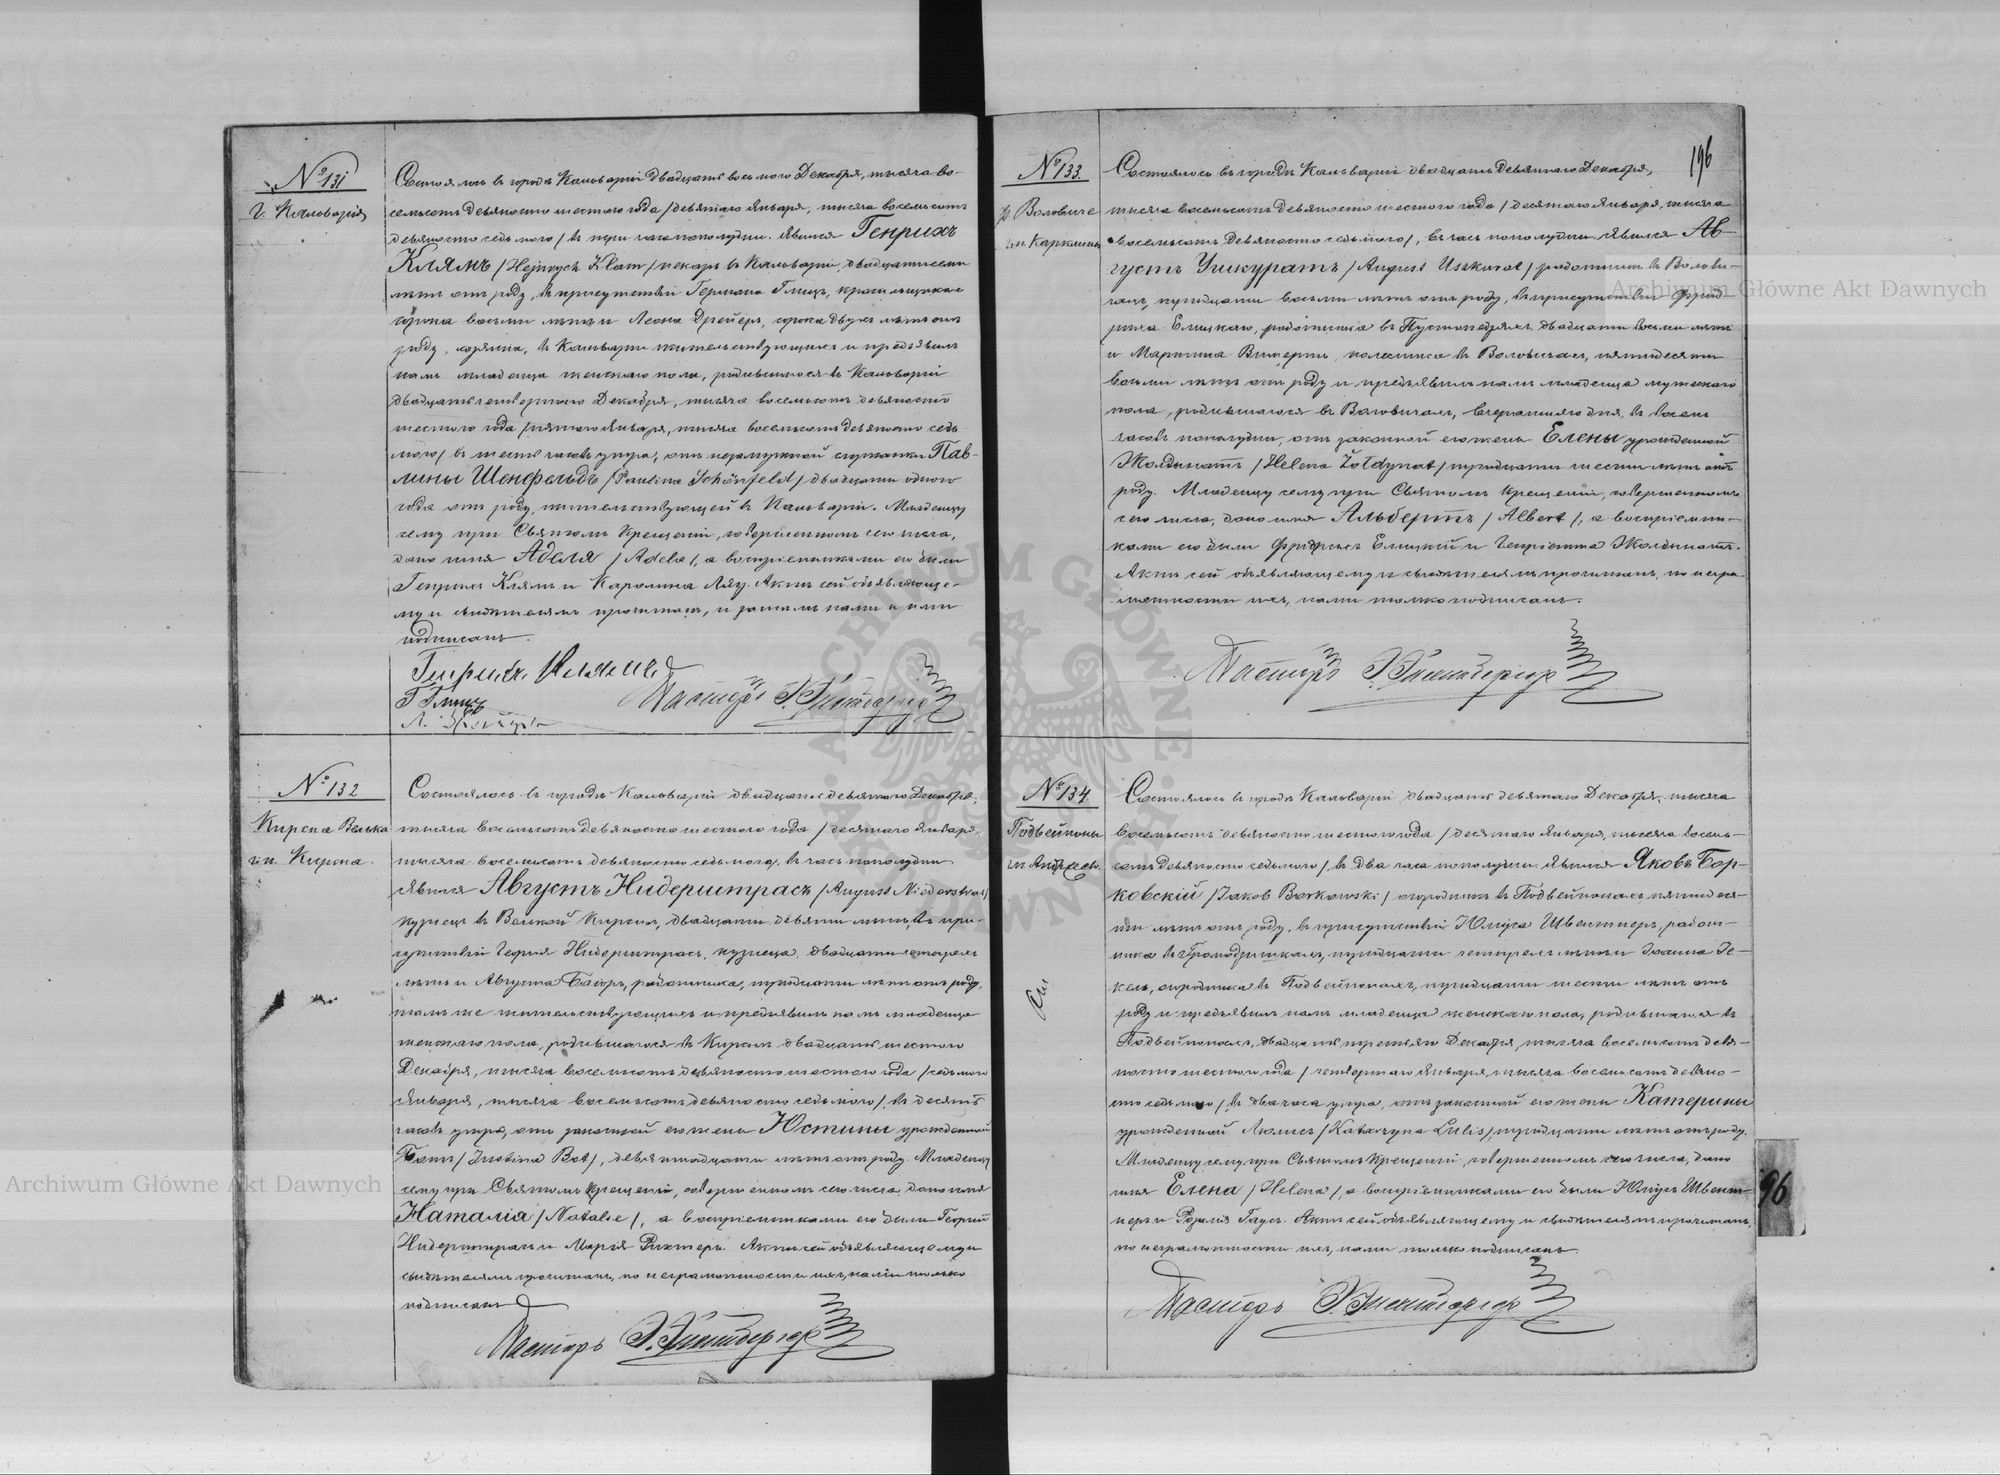 № 131
г. Кальварія
Состоялось въ городѣ Кальваріи двадцать восьмого Декабря, тысяча во-
семьсотъ девяносто шестого года /девятаго Января, тысяча восемьсотъ
девяносто седьмого/ въ три часа пополудни. Явился Генрихъ
Клямъ /Hejnrych Klam/ пекарь въ Кальваріи, двадцати семи
лѣтъ отъ роду, въ присутствіи Германа Глицъ, красильщика
сорока восьми лѣтъ и Леона Дрейеръ, сорока двухъ лѣтъ отъ
роду, въ Кальваріи жительствующихъ и предъявилъ
намъ младенца женскаго пола, родившагося въ Кальваріи
двадцать четвертаго Декабря, тысяча восемьсотъ девяносто
шестого года /пятаго Января, тысяча восемьсотъ девяносто седь-
мого/ въ шесть часовъ утра, отъ незамужной служанки Пав-
лины Шенфельдъ /Paulina Schönfeld/ двадцати одного
года отъ роду, жительствующей въ Кальваріи. Младенцу
сему при Святомъ Крещеніи, совершенномъ сего числа,
дано имя Аделя /Adela/, а воспріемниками его были
Генрихъ Клямъ и Каролина Ляу. Актъ сей объявляюще-
му и свидѣтелямъ прочитанъ, и затѣмъ нами и ими
подписанъ.
Генрихъ Клямъ
Г Глицъ
Л. Дрейеръ
Пасторъ
№ 132
Кирсна Велька
гм. Кирсна.
Состоялось въ городѣ Кальваріи двадцать девятаго Декабря,
тысяча восемьсотъ девяносто шестого года /десятаго Января,
тысяча восемьсотъ девяносто седьмого/, въ часъ пополудни
явился Августъ Нидерштрасъ /August Niederstras/
кузнецъ въ Велькой Кирснѣ, двадцати девяти лѣтъ, въ при-
сутствіи Георгія Нидерштрасъ, кузнеца, двадцати четырехъ
лѣтъ и Августа Баеръ, работника, тридцати лѣтъ отъ роду,
тамъ же жительствующихъ и предъявилъ намъ младенца
женскаго пола, родившагося въ Кирснѣ двадцать шестого
Декабря, тысяча восемьсотъ девяносто шестого года /седьмого
Января, тысяча восемьсотъ девяносто седьмого/, въ десять
часовъ утра, отъ законной его жены Юстины урожденной
Ботъ /Justina Bot/, девятнадцати лѣтъ отъ роду. Младенцу
сему при Святомъ Крещеніи, совершенномъ сего числа, дано имя
Наталія /Natalie/, а воспріемниками его были Георгій
Нидерштрасъ и Марія Рихтеръ. Актъ сей объявляющему и
свидѣтелямъ прочитанъ, по неграмотности ихъ, нами только
подписанъ
Пасторъ
196
№ 133.
Воловиче
гм. Каркліны
Состоялось въ городѣ Кальваріи двадцать девятаго Декабря,
тысяча восемьсотъ девяносто шестого года /десятаго Января, тысяча
восемьсотъ девяносто седьмого/, въ часъ пополудни явился Ав-
густъ Ушкуратъ /August Uszkurat/ работникъ въ Волови-
чахъ, тридцати восьми лѣтъ отъ роду, въ присутствіи Фрид-
риха Елицкаго, работника въ двадцати восьми лѣтъ
и Мартина Витертъ, колесника въ Воловичахъ, пятидесяти
восьми лѣтъ отъ роду и предъявилъ намъ младенца мужескаго
пола, родившагося въ Воловичахъ, вчерашняго дня, въ восемь
часовъ пополудни, отъ законной его жены Елены урожденной
Жолдынатъ /Helena Żołdynat/ тридцати шести лѣтъ отъ
роду. Младенцу сему при Святомъ Крещеніи, совершенномъ
сего числа, дано имя Альбертъ /Albert/, а воспріемни-
ками его были Фридрихъ Елицкій и Генріетта Жолдынатъ.
Актъ сей объявляющему и свидѣтелямъ прочитанъ, по негра-
мотности ихъ, нами только подписанъ.
Пасторъ
№ 134.
Подвейпоны
гм. Андржеево.
Состоялось въ городѣ Кальваріи, двадцать девятаго Декабря, тысяча
восемьсотъ девяносто шестого года /десятаго Января, тысяча восемь-
сотъ девяносто седьмого/, въ два часа пополудни явился Яковъ Бор-
ковскій /Jakob Borkowski/ огородникъ въ Подвейпонахъ пятидеся-
ти лѣтъ отъ роду, въ присутствіи Юлiуса Швентнеръ, работ-
ника въ Громадзишкахъ, тридцати четырехъ лѣтъ и Іоанна Ге-
кель, огородника въ Подвейпонахъ, тридцати шести лѣтъ отъ
роду и предъявилъ намъ младенца женскаго пола, родившагося въ
Подвейпонахъ, двадцать третьяго Декабря, тысяча восемьсотъ девя-
носто шестого года /четвертаго Января, тысяча восемьсотъ девяно-
сто седьмого/, въ два часа утра, отъ законной его жены Катерины
урожденной Люлисъ /Katarzyna Lulis/, тридцати лѣтъ отъ роду.
Младенцу сему при Святомъ Крещеніи, совершенномъ сего числа, дано
имя Елена /Helena/, а воспріемниками его были Юлiусъ Швент-
неръ и Розалія Гаусъ. Актъ сей объявляющему и свидѣтелямъ прочитанъ,
по неграмотности ихъ, нами только подписанъ.
Пасторъ
96
Archiwum Główne Akt Dawnych
Archiwum Główne Akt Dawnych
ARCHIWUM GŁÓWNE AKT DAWNYCH